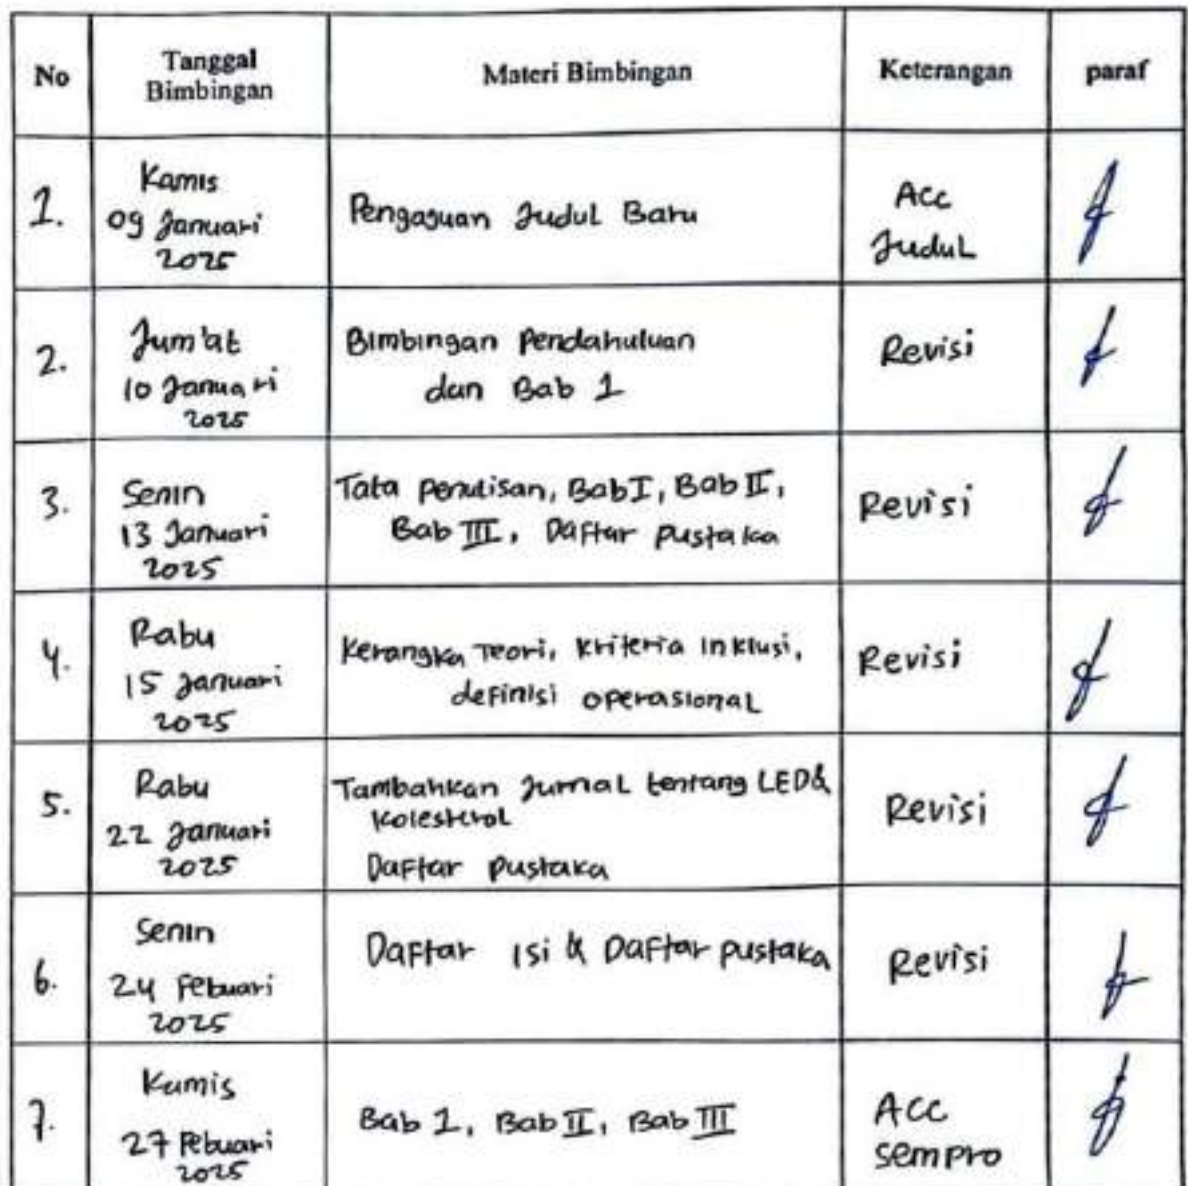 No
Tanggal
Bimbingan
Materi Bimbingan
Keterangan
paraf
1.
Kamis
09 Januari
2025
Pengajuan Judul Baru
Acc
Judul
2.
Jum'at
10 Januari
2025
Bimbingan Pendahuluan
dan Bab 1
Revisi
3.
Senin
13 Januari
2025
Tata Penulisan, Bab I, Bab II,
Bab III, Daftar pustaka
Revisi
4.
Rabu
15 Januari
2025
Kerangka Teori, kriteria inklusi,
definisi operasional
Revisi
5.
Rabu
22 Januari
2025
Tambahkan Jurnal tentang LED &
Kolesterol
Daftar pustaka
Revisi
6.
Senin
24 Febuari
2025
Daftar isi & Daftar pustaka
Revisi
7.
Kamis
27 Febuari
2025
Bab 1, Bab II, Bab III
Acc
sempro